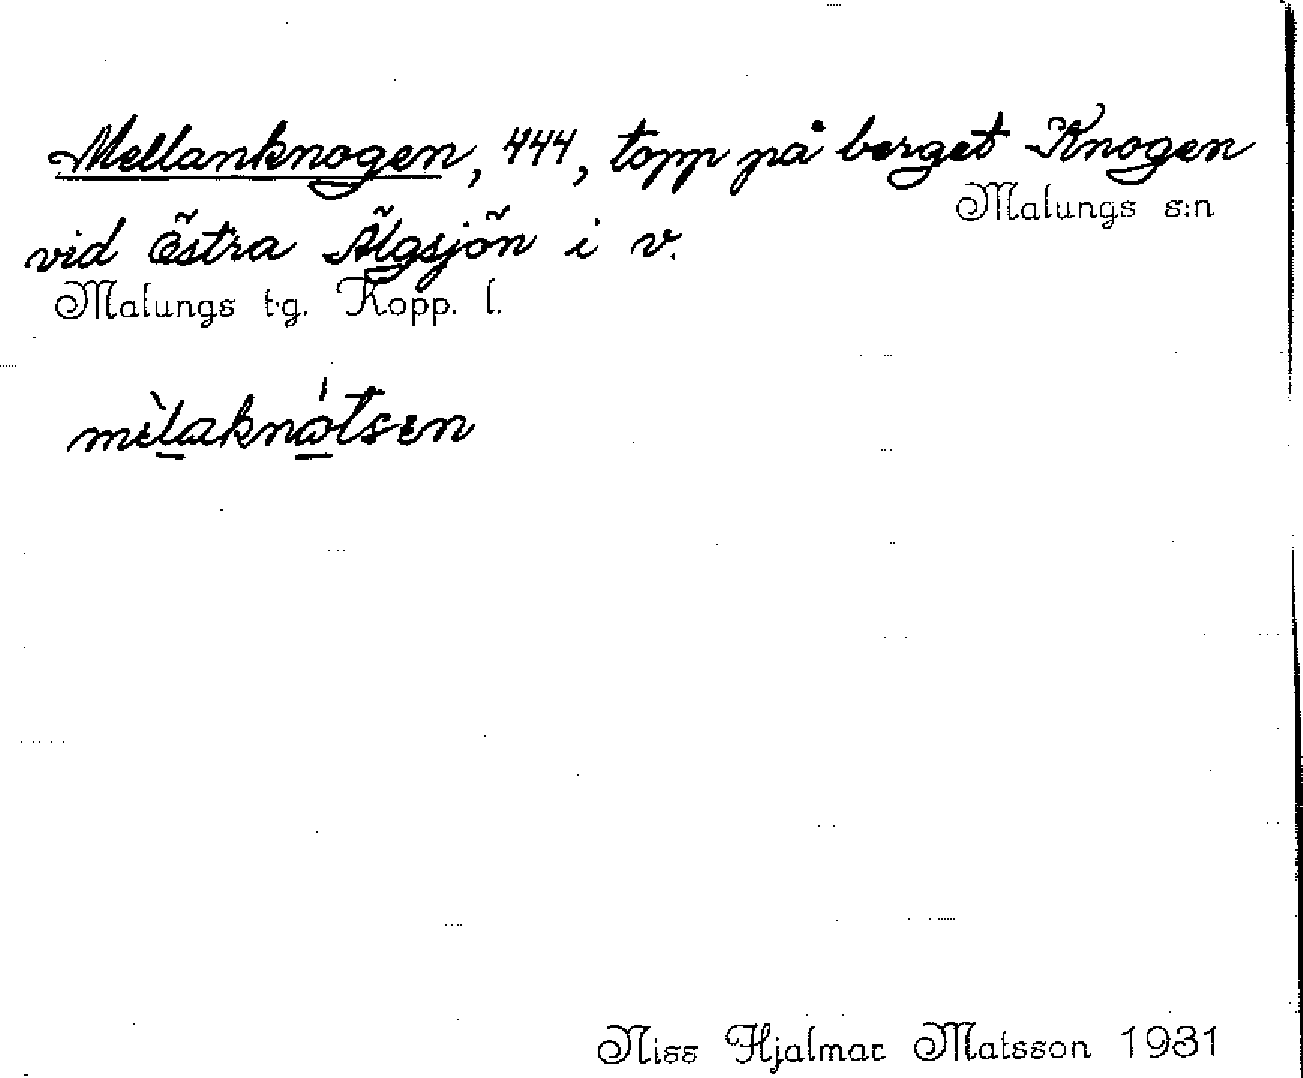 Mellanknogen, 444, topp på berget Knogen
Malungs s:n
vid Östra Älgsjön i v.
Malungs t.g. Kopp. l.
mèlaknótsen
Niss Hjalmar Matsson 1931